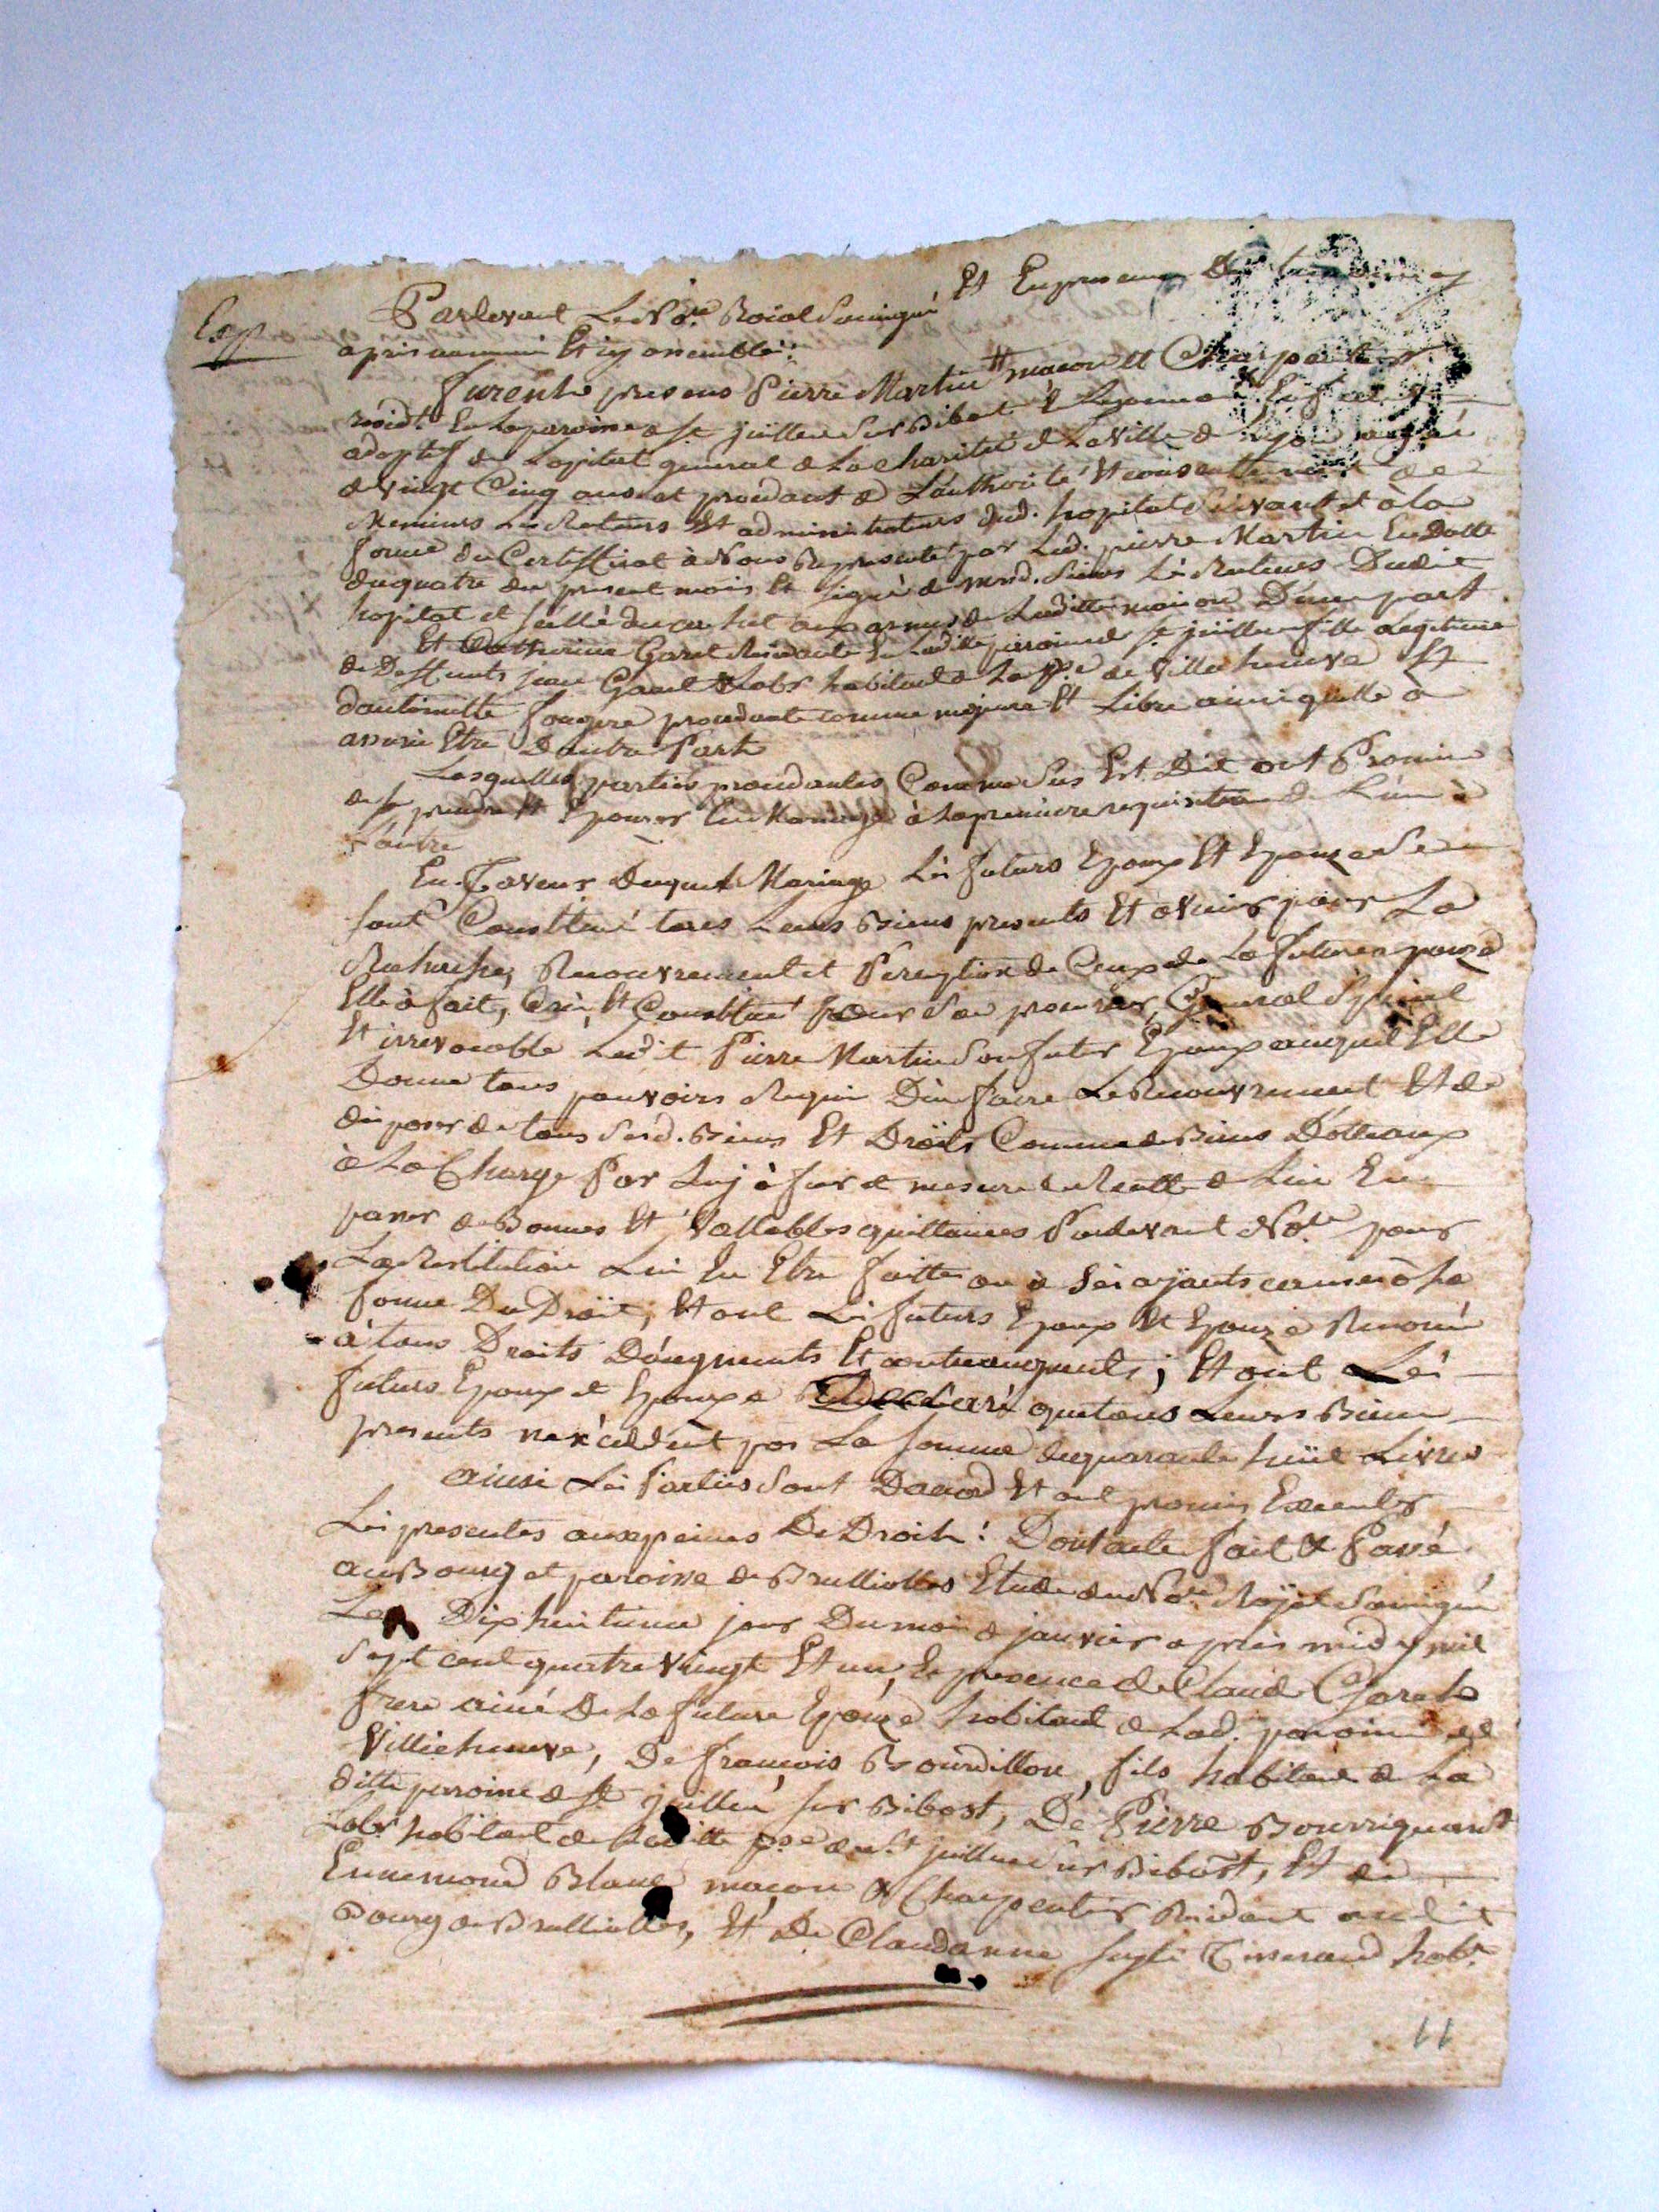 Exp
Pardevant Le No.re Roial Soussigné Et En presence Des temoins cy
apris nommés Et icy assemblés
furent presens Pierre Martin # maçon et Charpentier
resid.t En La paroisse de St. jullien Sur Bibost En Lyonnois Enfant
adoptif de Lopital general de La charité de La Ville de Lyon agé
de vingt Cinq ans et procedant de Lauthorité Et consentement de
Messieurs Les Recteurs Et administrateurs dud. hopital Suivant et à la
forme du Certifficat à Nous Representé par Led. pierre Martin En Datte
du quatre du present mois Et signé de mesd. Sieurs Les Recteurs Dudit
hopital et scellé du cachet aux armes de Laditte maison D'une part
Et Catherine Garel Residante En Laditte paroisse de St. jullien fille Legitime
de Deffunts jean Garel Labr habitant de La p.sse de Villechenève Et
dantoinette fougere procedante comme majeure Et Libre ainsi quelle à
assuré Etre D'autre Part
Lesquelles parties procedantes Comme Sus Est Dit ont Promis
de se prendre Et Epouser En Mariage à La premiere requisition de Lun à
L'autre
En faveur duquel Mariage Les futurs Epoux Et Epouze Se
sont Constitué tous Leurs Biens presents Et avenir pour La
Recherche, Recouvrement et Perception de Ceux de La future epouze
Elle à fait, Créé, Et Constitué pour Son procureur, General Special
Et irrevocable Ledit Pierre Martin Son futur Epoux auquel Elle
Donne tous pouvoirs Requis D'en faire Le Recouvrement Et de
disposer de tous Sesd. Biens Et Droits Comme de Biens Dotteaux
à La Charge Par Luy à fur et mesure de Recette de Lui En
passer de Bonnes Et Vallables quittances Pardevant No.re pour
La Restitution Lui En Etre faitte ou à Ses ayants cause à La
forme Du Droit, Et ont Les futurs Epoux Et Epouze Renoncé
à tous Droits D'augments Et contreaugments; Et ont Les
futurs Epoux et Epouze Declaré que tous Leurs Biens
presents n'excedent pas La somme de quarante huit Livres
ainsi Les Parties Sont Daccord Et ont promis Executer
Les presentes aux peines De Droit: Dont acte fait & Passé
au Bourg et paroisse de Brulliolles Etude du No.re Royal Soussigné
Le Dix huitieme jour Du mois de janvier apres midy mil
Sept cent quatre vingt Et un, En presence de Claude Garel
frere ainé De La future Epouze habitant de Lad. paroisse de
Villechenève, De françois Bourdillon, fils habitant de La
ditte paroisse de St jullien sur Bibost, De Pierre Bourriquand
Labr habitant de Laditte p.sse de St jullien Sur Bibost, Et de
Ennemond Blanc maçon & Charpentier Residant audit
Bourg de Brulliolles, Et De Claudanne hab.t
11